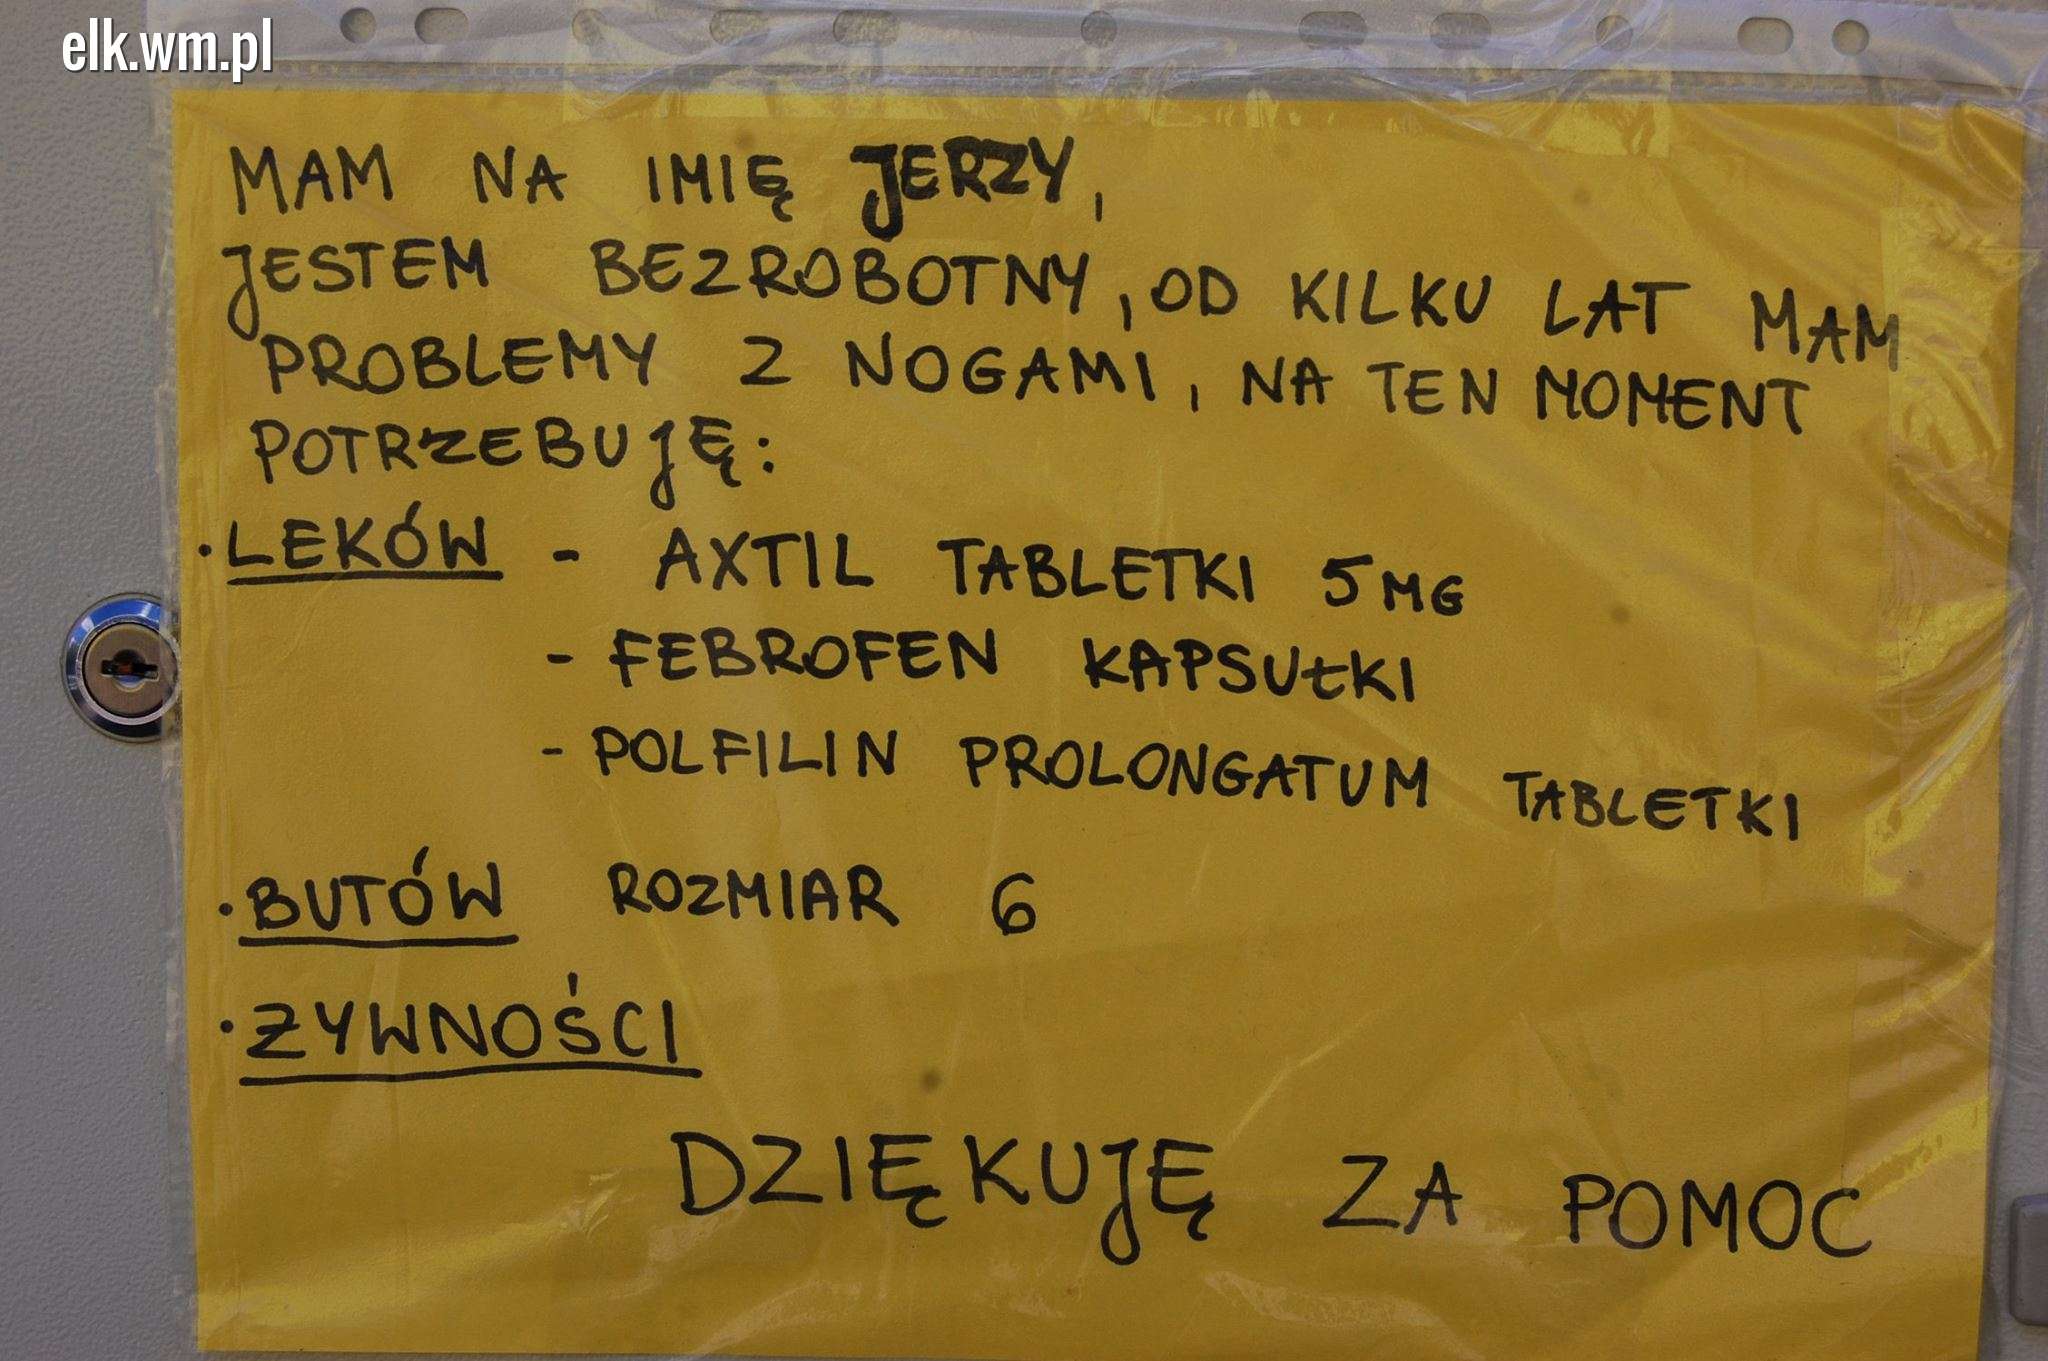 elk.wm.pl
MAM NA IMIĘ JERZY,
JESTEM BEZROBOTNY, OD KILKU LAT MAM
PROBLEMY Z NOGAMI, NA TEN MOMENT
POTRZEBUJĘ:
• LEKÓW - AXTIL TABLETKI 5MG
- FEBROFEN KAPSUŁKI
- POLFILIN PROLONGATUM TABLETKI
• BUTÓW ROZMIAR 6
• ZYWNOŚCI
DZIĘKUJĘ ZA POMOC